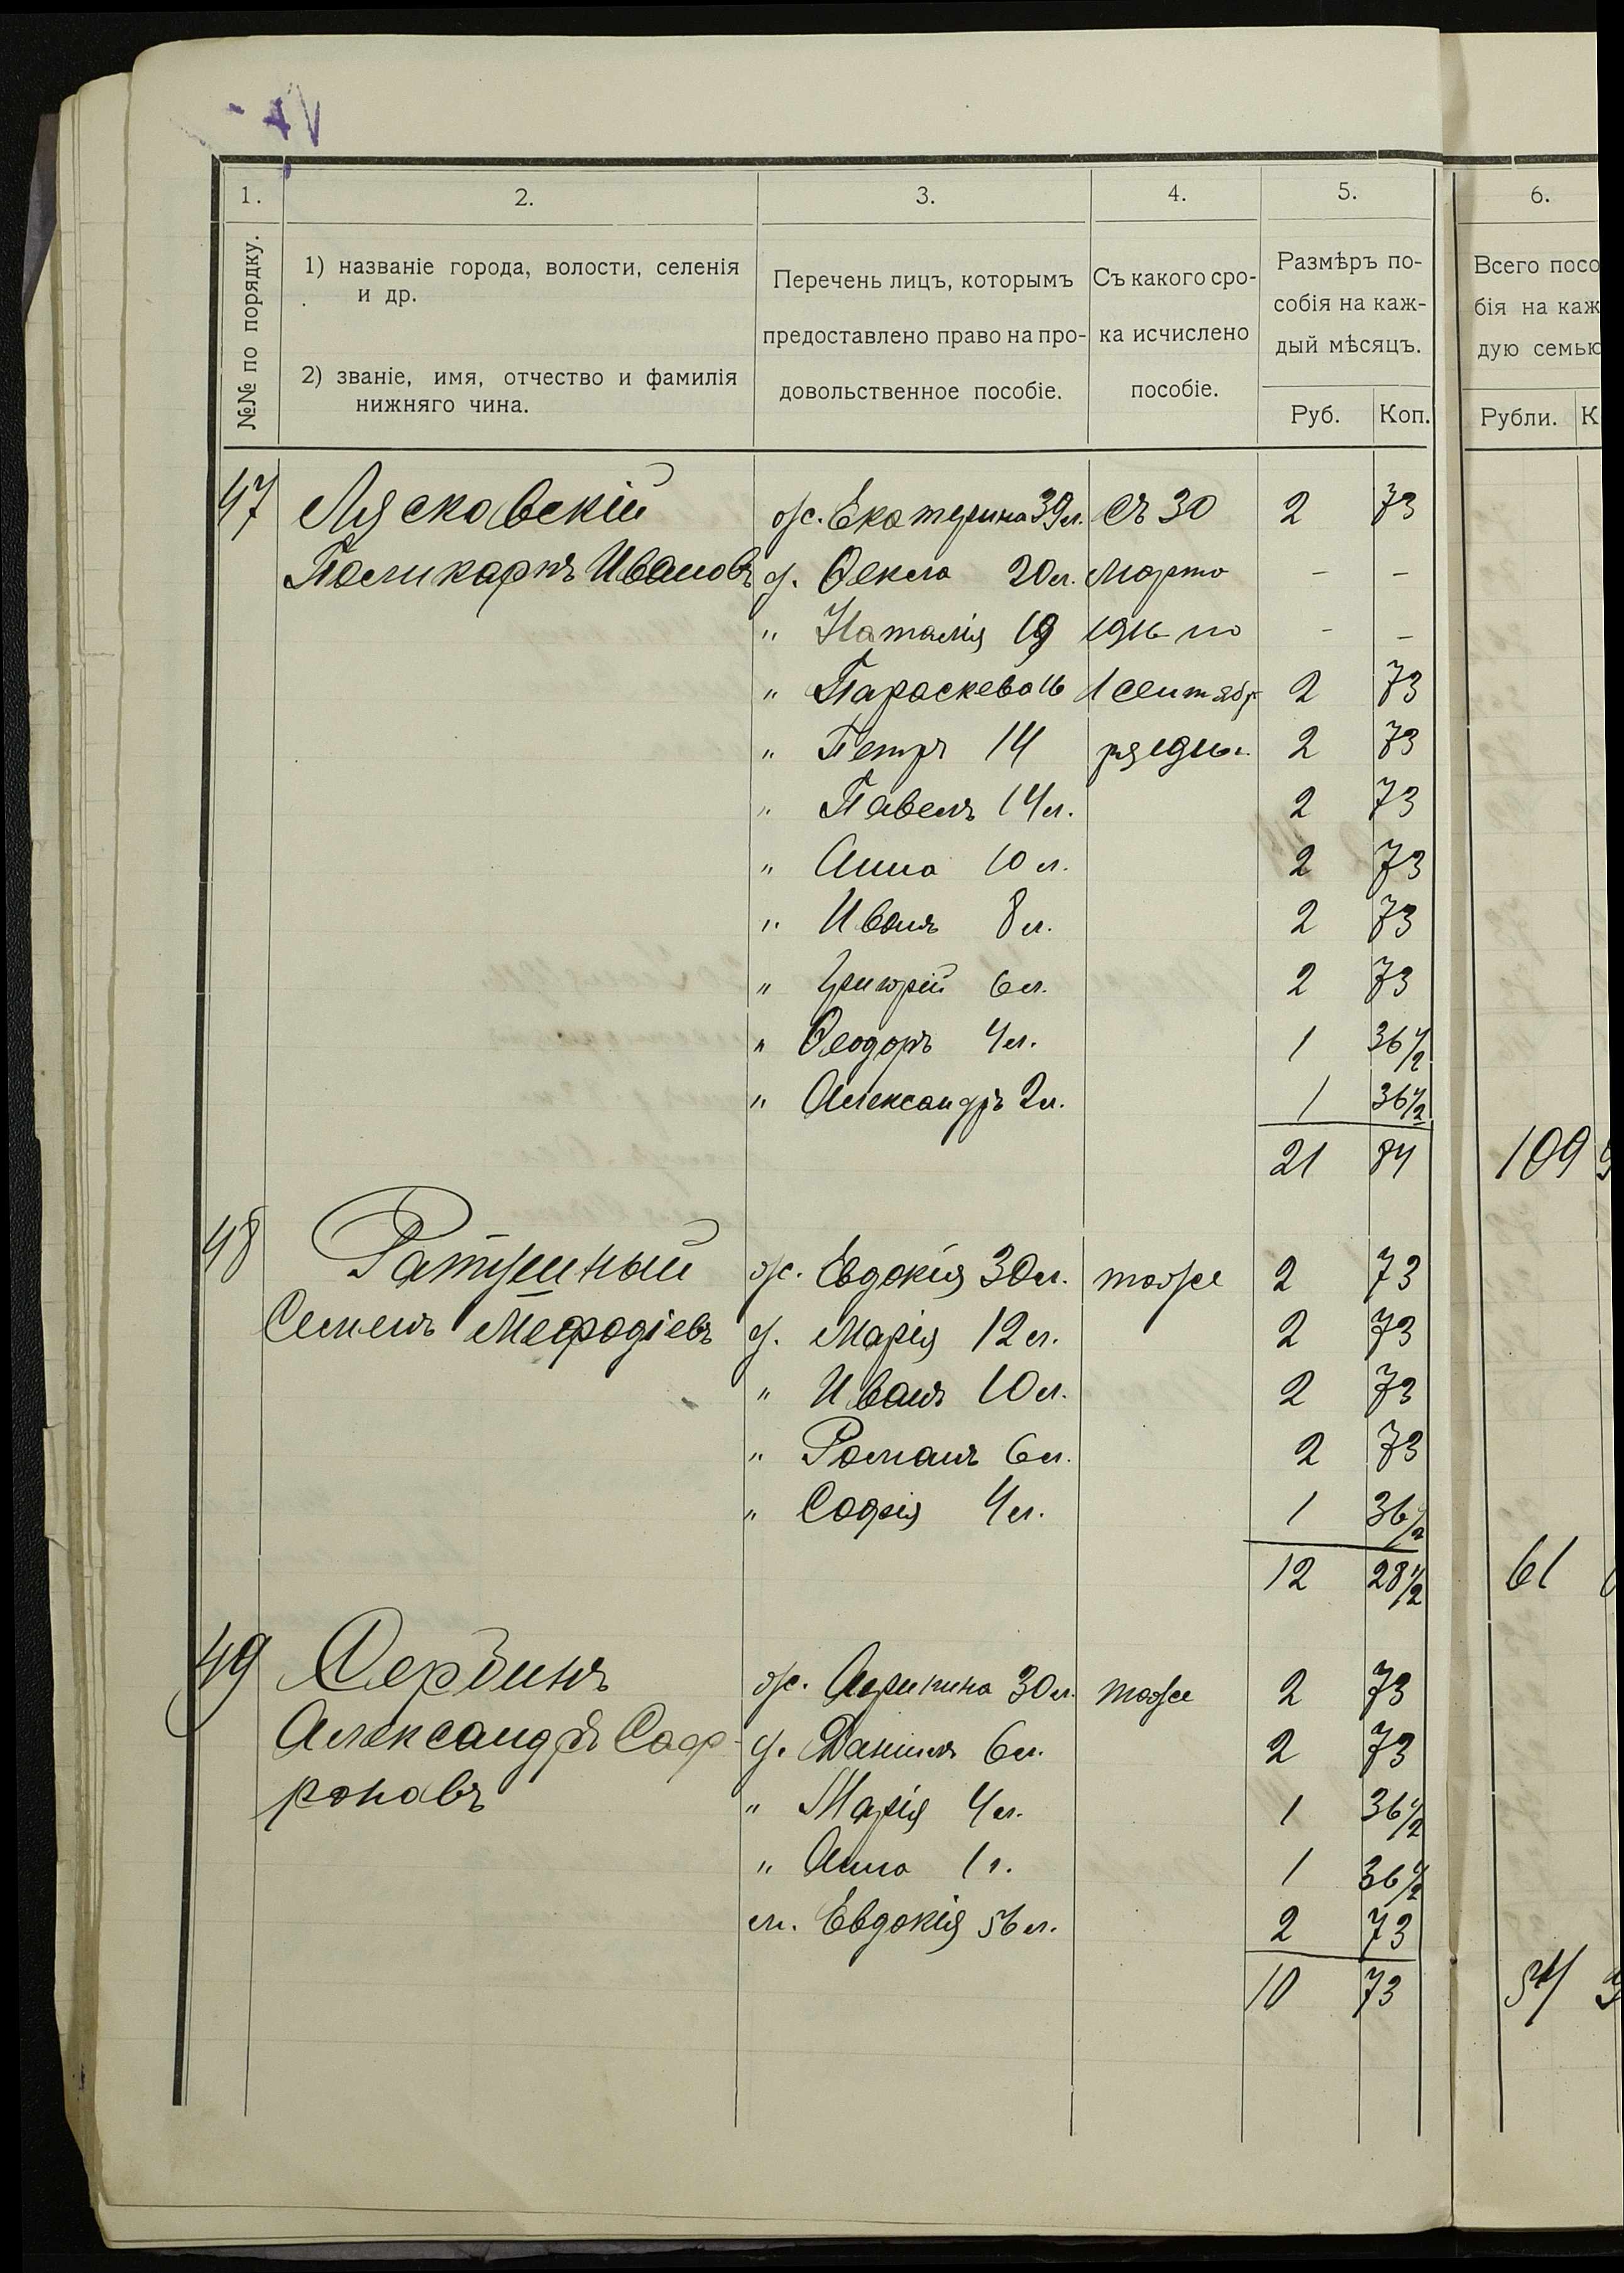 1. 2. 3. 4. 5. 6.
№№ по порядку.
1) названіе города, волости, селенія
и др.
2) званіе, имя, отчество и фамилія
нижняго чина.
Перечень лицъ, которымъ
предоставлено право на про-
довольственное пособіе.
Съ какого сро-
ка исчислено
пособіе.
Размѣръ по-
собія на каж-
дый мѣсяцъ.
Руб. Коп.
Всего посо
бія на каж
дую семью
Рубли. К
47 Лясковскій ж. Екатерина 39 л. Съ 30 2 73
Поликарпъ Ивановъ д. Ѳекла 20 л. марта - -
" Наталія 19 1916 по - -
" Параскева 16 1 сентяб 2 73
" Петръ 14 ря 1916 г. 2 73
" Павелъ 14 л. 2 73
" Анна 10 л. 2 73
" Иванъ 8 л. 2 73
" Григорій 6 л. 2 73
" Ѳеодоръ 4 л. 1 36 1/2
" Александръ 2 л. 1 36 1/2
21 84 109
48 Ратушный ж. Евдокія 30 л. тоже 2 73
Семенъ Мефодіевъ д. Марія 12 л. 2 73
" Иванъ 10 л. 2 73
" Романъ 6 л. 2 73
" Софія 4 л. 1 36 1/2
12 28 1/2 61
49 Сербинъ ж. Агрипина 30 л. тоже 2 73
Александръ Соф- д. Даніилъ 6 л. 2 73
роновъ " Марія 4 л. 1 36 1/2
" Анна 1 г. 1 36 1/2
м. Евдокія 56 л. 2 73
10 73 54